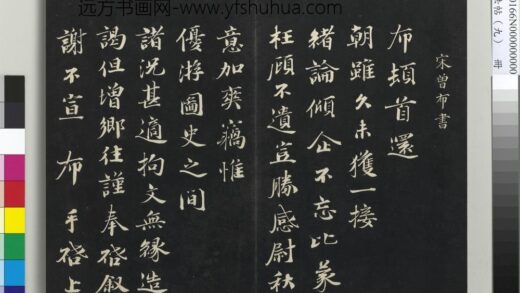 远方书画网-www.yfshuhua.com
宋曾布書
布頓首還
朝雖久未獲一接
緒論傾企不忘比蒙
枉顧不遺豈勝感尉秋
意加爽竊惟
優游圖史之間
諸況甚適拘文無緣造
謁但增鄉往謹奉啓叙
謝不宣 布 手啓上
帖（九） 冊